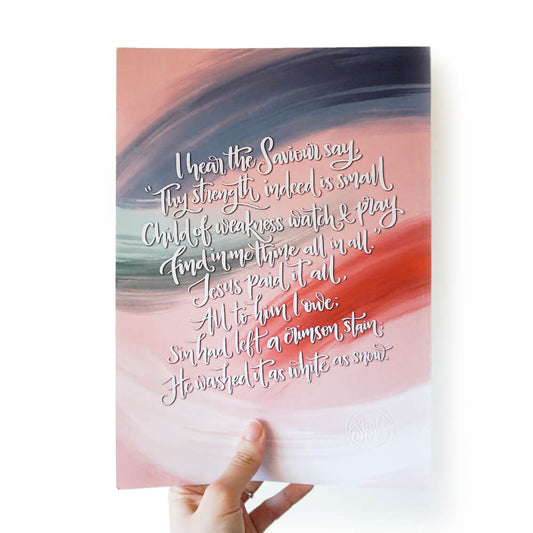 I hear the Saviour say,
"Thy strength indeed is small
Child of weakness watch & pray
Find in me thine all in all."
Jesus paid it all,
All to him I owe;
Sin had left a crimson stain;
He washed it as white as snow.